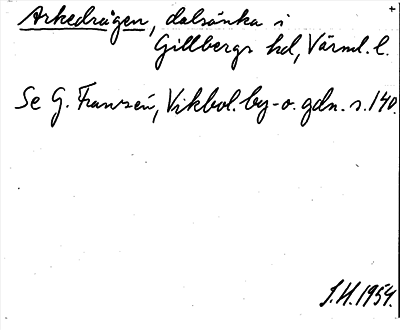 Arkedrågen, dalsänka i
Gillbergs hd, Värml. l.
Se G. Franzén, Vikbol. by- o. gdn. s. 140.
S.H. 1954.